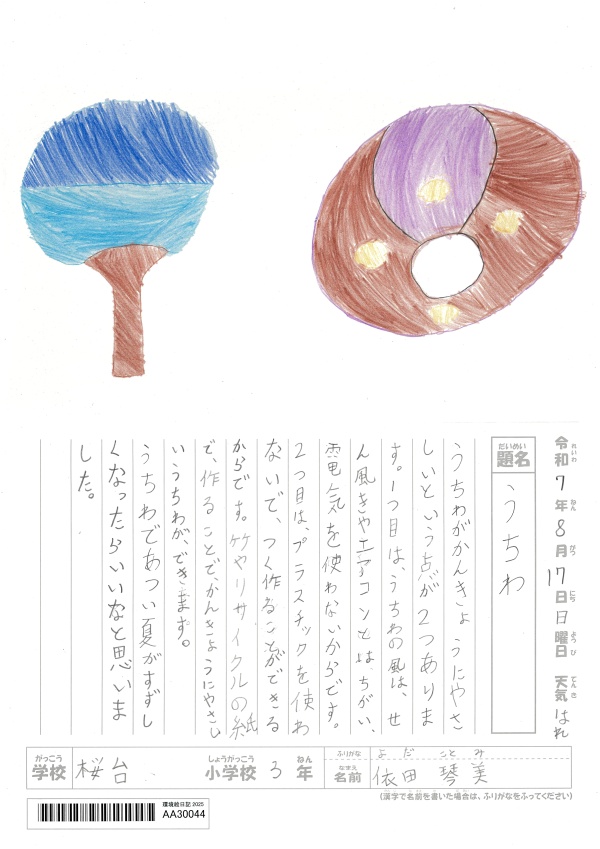 令和7年8月17日日曜日 天気 はれ
れいわ ねん がつ にち ようび てんき
だいめい
題名 うちわ
うちわがかんきょうにやさ
しいという点が2つありま
す。1つ目は、うちわの風は、せ
ん風きやエアコンとはちがい、
電気を使わないからです。
2つ目は、プラスチックを使わ
ないで、つく作ることができる
からです。竹やリサイクルの紙
で、作ることで、かんきょうにやさし
いうちわが、できます。
うちわであつい夏がすずし
くなったらいいなと思いま
した。
がっこう しょうがっこう ねん ふりがな よだ ことみ
学校 桜台 小学校 3年 なまえ 名前 依田 琴美
(漢字で名前を書いた場合は、ふりがなをふってください)
環境絵日記 2025
AA30044